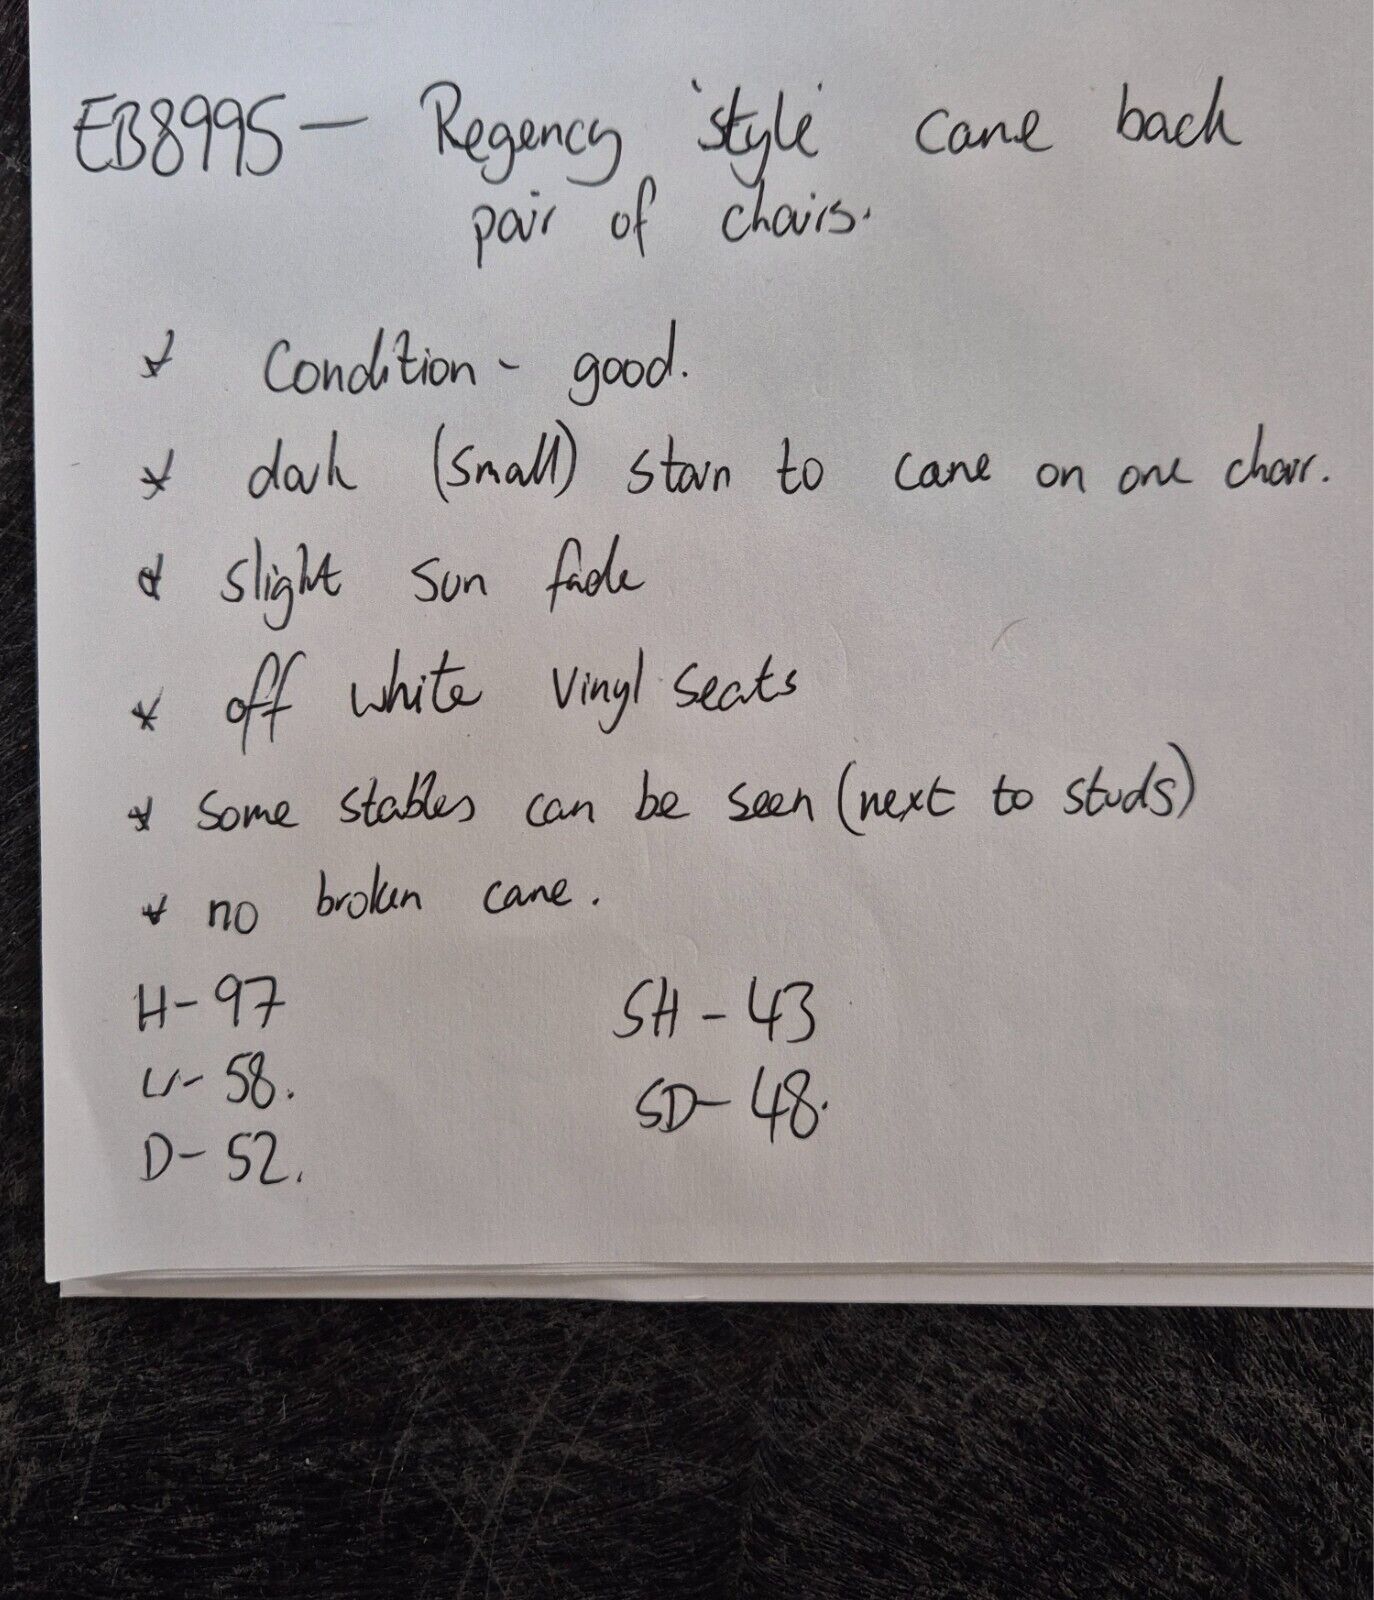 EB8995 — Regency 'style' cane back
pair of chairs.
* Condition - good.
* dark (small) stain to cane on one chair.
* slight sun fade
* off white vinyl seats
* some stables can be seen (next to studs)
* no broken cane.
H - 97
W - 58.
D - 52.
SH - 43
SD - 48.